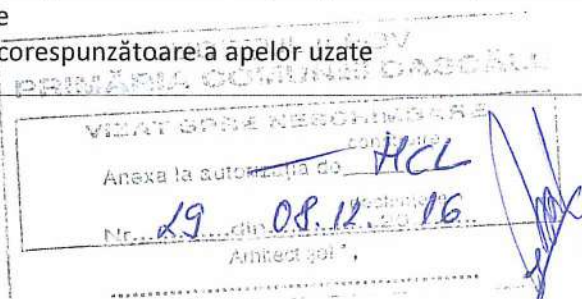 e
corespunzătoare a apelor uzate
PRIMĂRIA COMUNEI DASCĂLU
VIZAT SPRE NESCHIMBARE
construire
Anexa la autorizația de HCL
Nr. 29 din 08.12.2016
Arhitect șef,